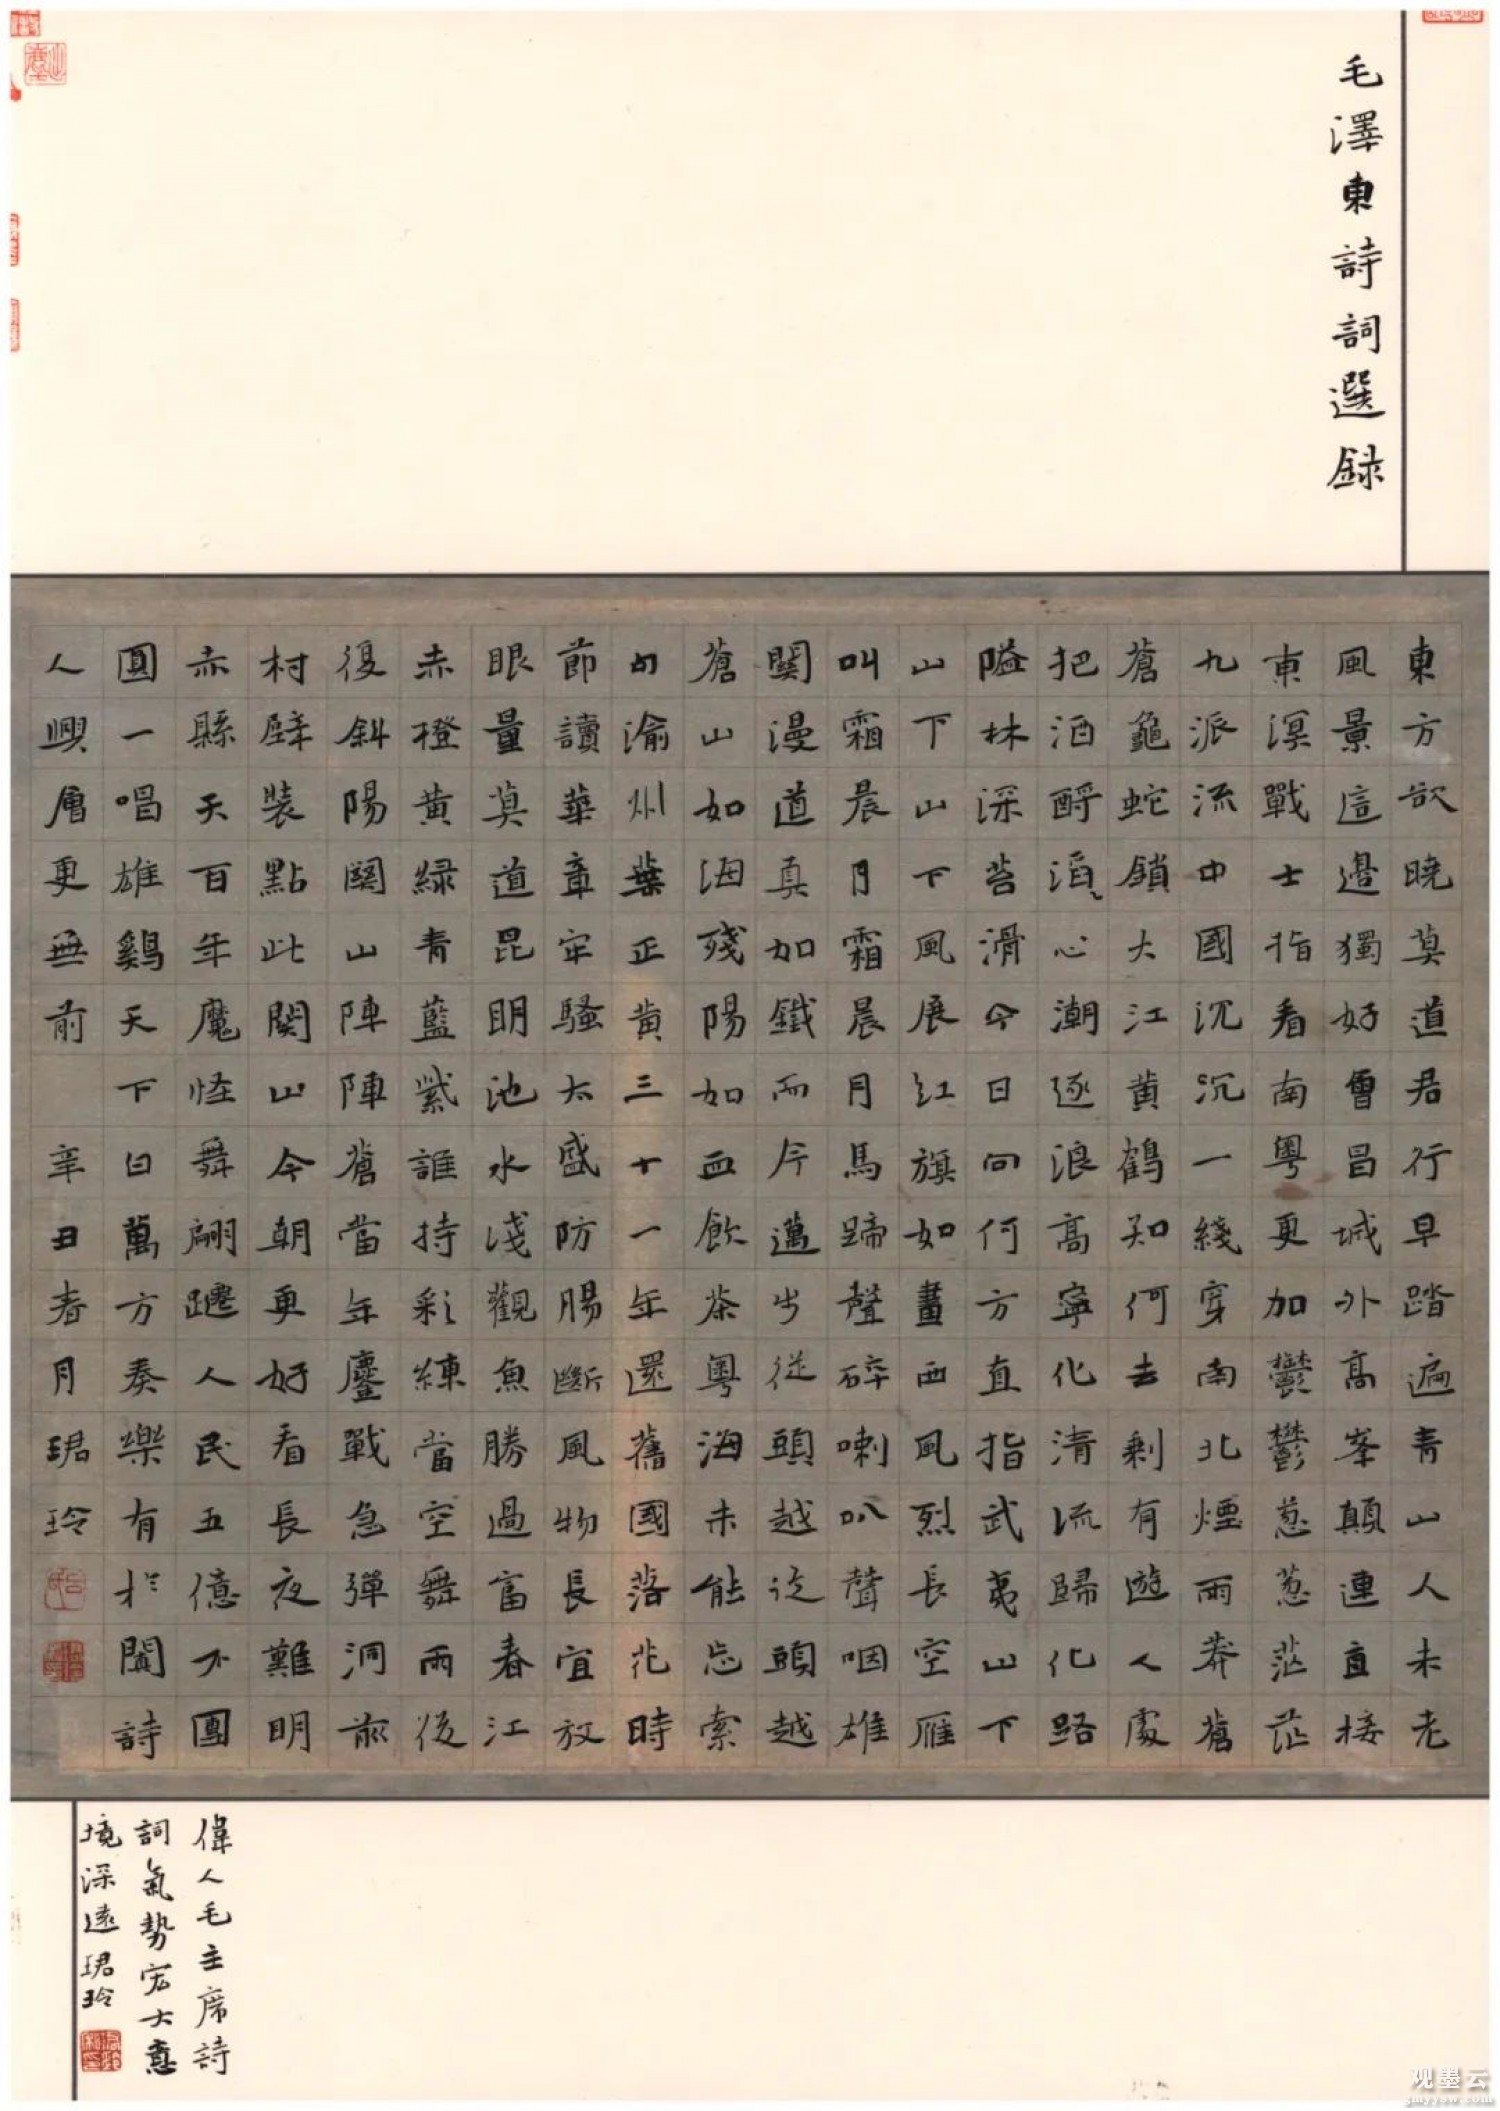 毛澤東詩詞選録
東方欲曉莫道君行早踏遍青山人未老
風景這邊獨好會昌城外高峯顛連直接
東溟戰士指看南粵更加鬱鬱葱葱茫茫
九派流中國沉沉一綫穿南北煙雨莽蒼
蒼龜蛇鎖大江黃鶴知何去剩有遊人處
把酒酹滔〻心潮逐浪高寧化清流歸化路
隘林深苔滑今日向何方直指武夷山下
山下山下風展紅旗如畫西風烈長空雁
叫霜晨月霜晨月馬蹄聲碎喇叭聲咽雄
關漫道真如鐵而今邁步從頭越從頭越
蒼山如海殘陽如血飲茶粵海未能忘索
句渝州葉正黃三十一年還舊國落花時
節讀華章牢騷太盛防腸斷風物長宜放
眼量莫道昆明池水淺觀魚勝過富春江
赤橙黃綠青藍紫誰持彩練當空舞雨後
復斜陽關山陣陣蒼當年鏖戰急彈洞前
村壁裝點此關山今朝更好看長夜難明
赤縣天百年魔怪舞翩躚人民五億不團
圓一唱雄鷄天下白萬方奏樂有於闐詩
人興會更無前 辛丑春月珺玲
偉人毛主席詩
詞氣勢宏大意
境深遠珺玲
观墨云
gmyysw.com